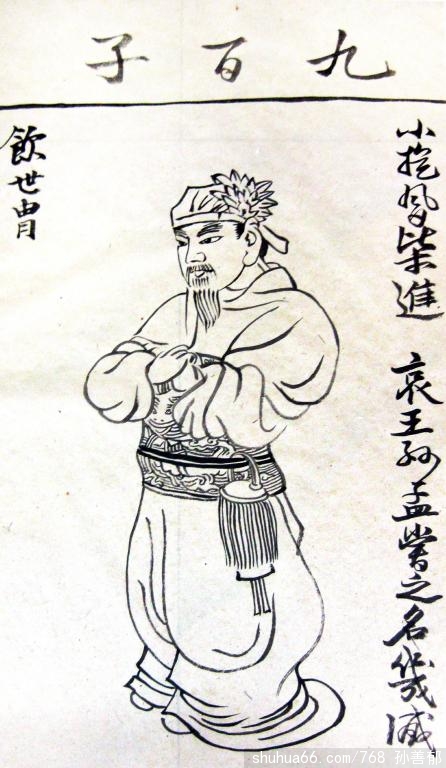 九百子
小旋风柴進 哀王孙孟嘗之名幾滅
飲世冑
shuhua66.com/768 孙善郁